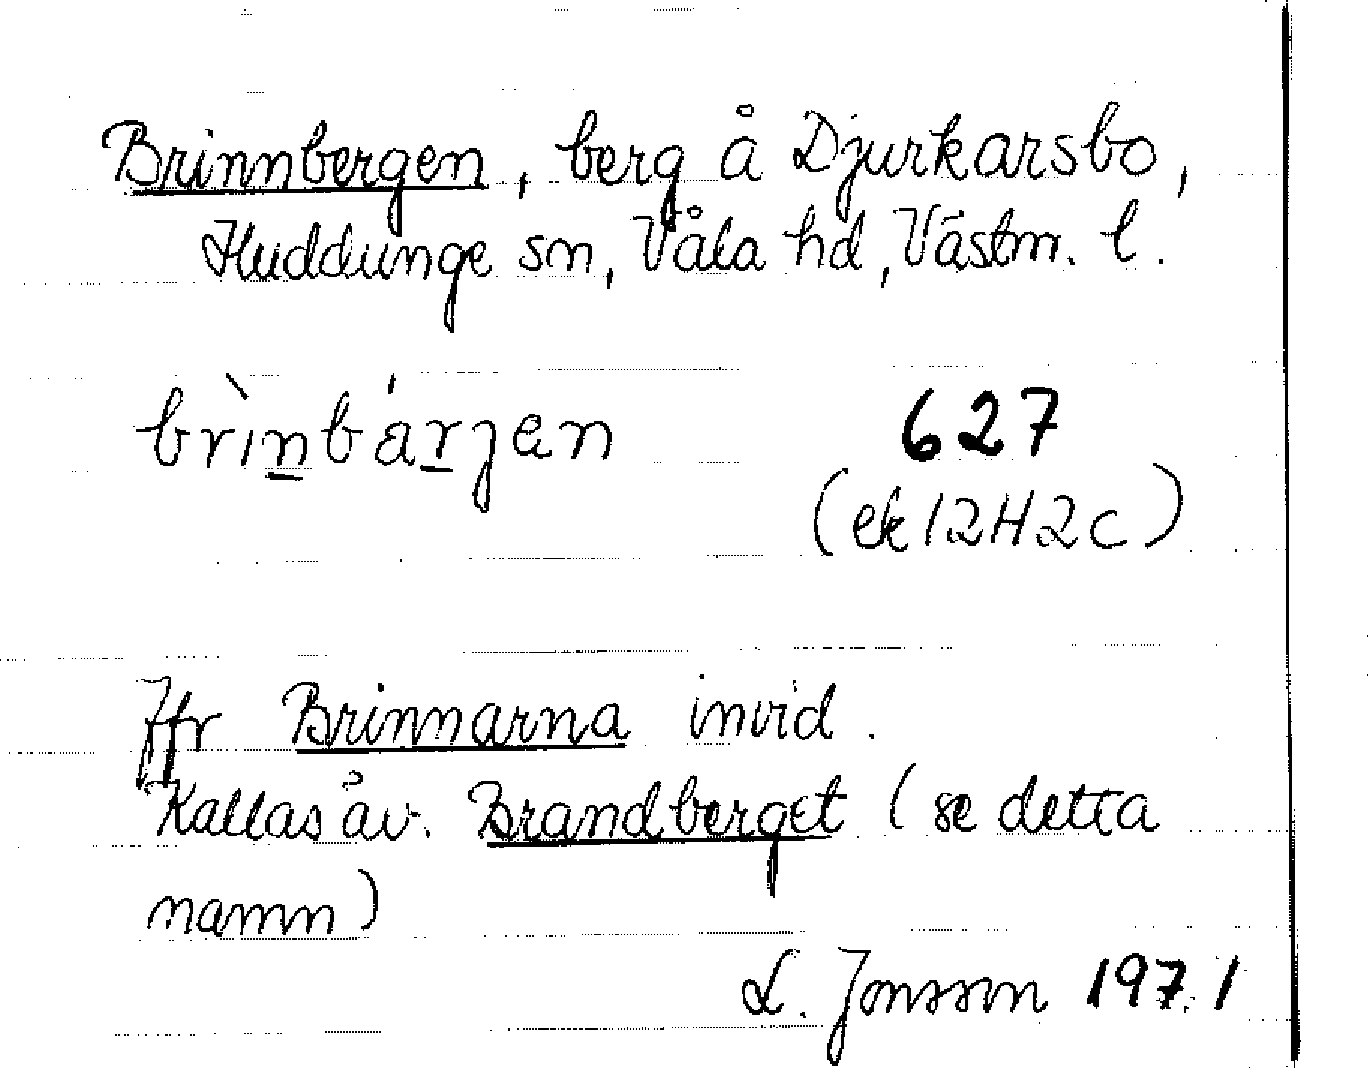 Brinnbergen, berg å Djurkarsbo,
Huddunge sn, Våla hd, Västm. l.
brìnbárjen 627
(ek 12H2c)
Jfr Brinnarna invid.
Kallas äv. Brandberget (se detta
namn)
L. Jonsson 1971